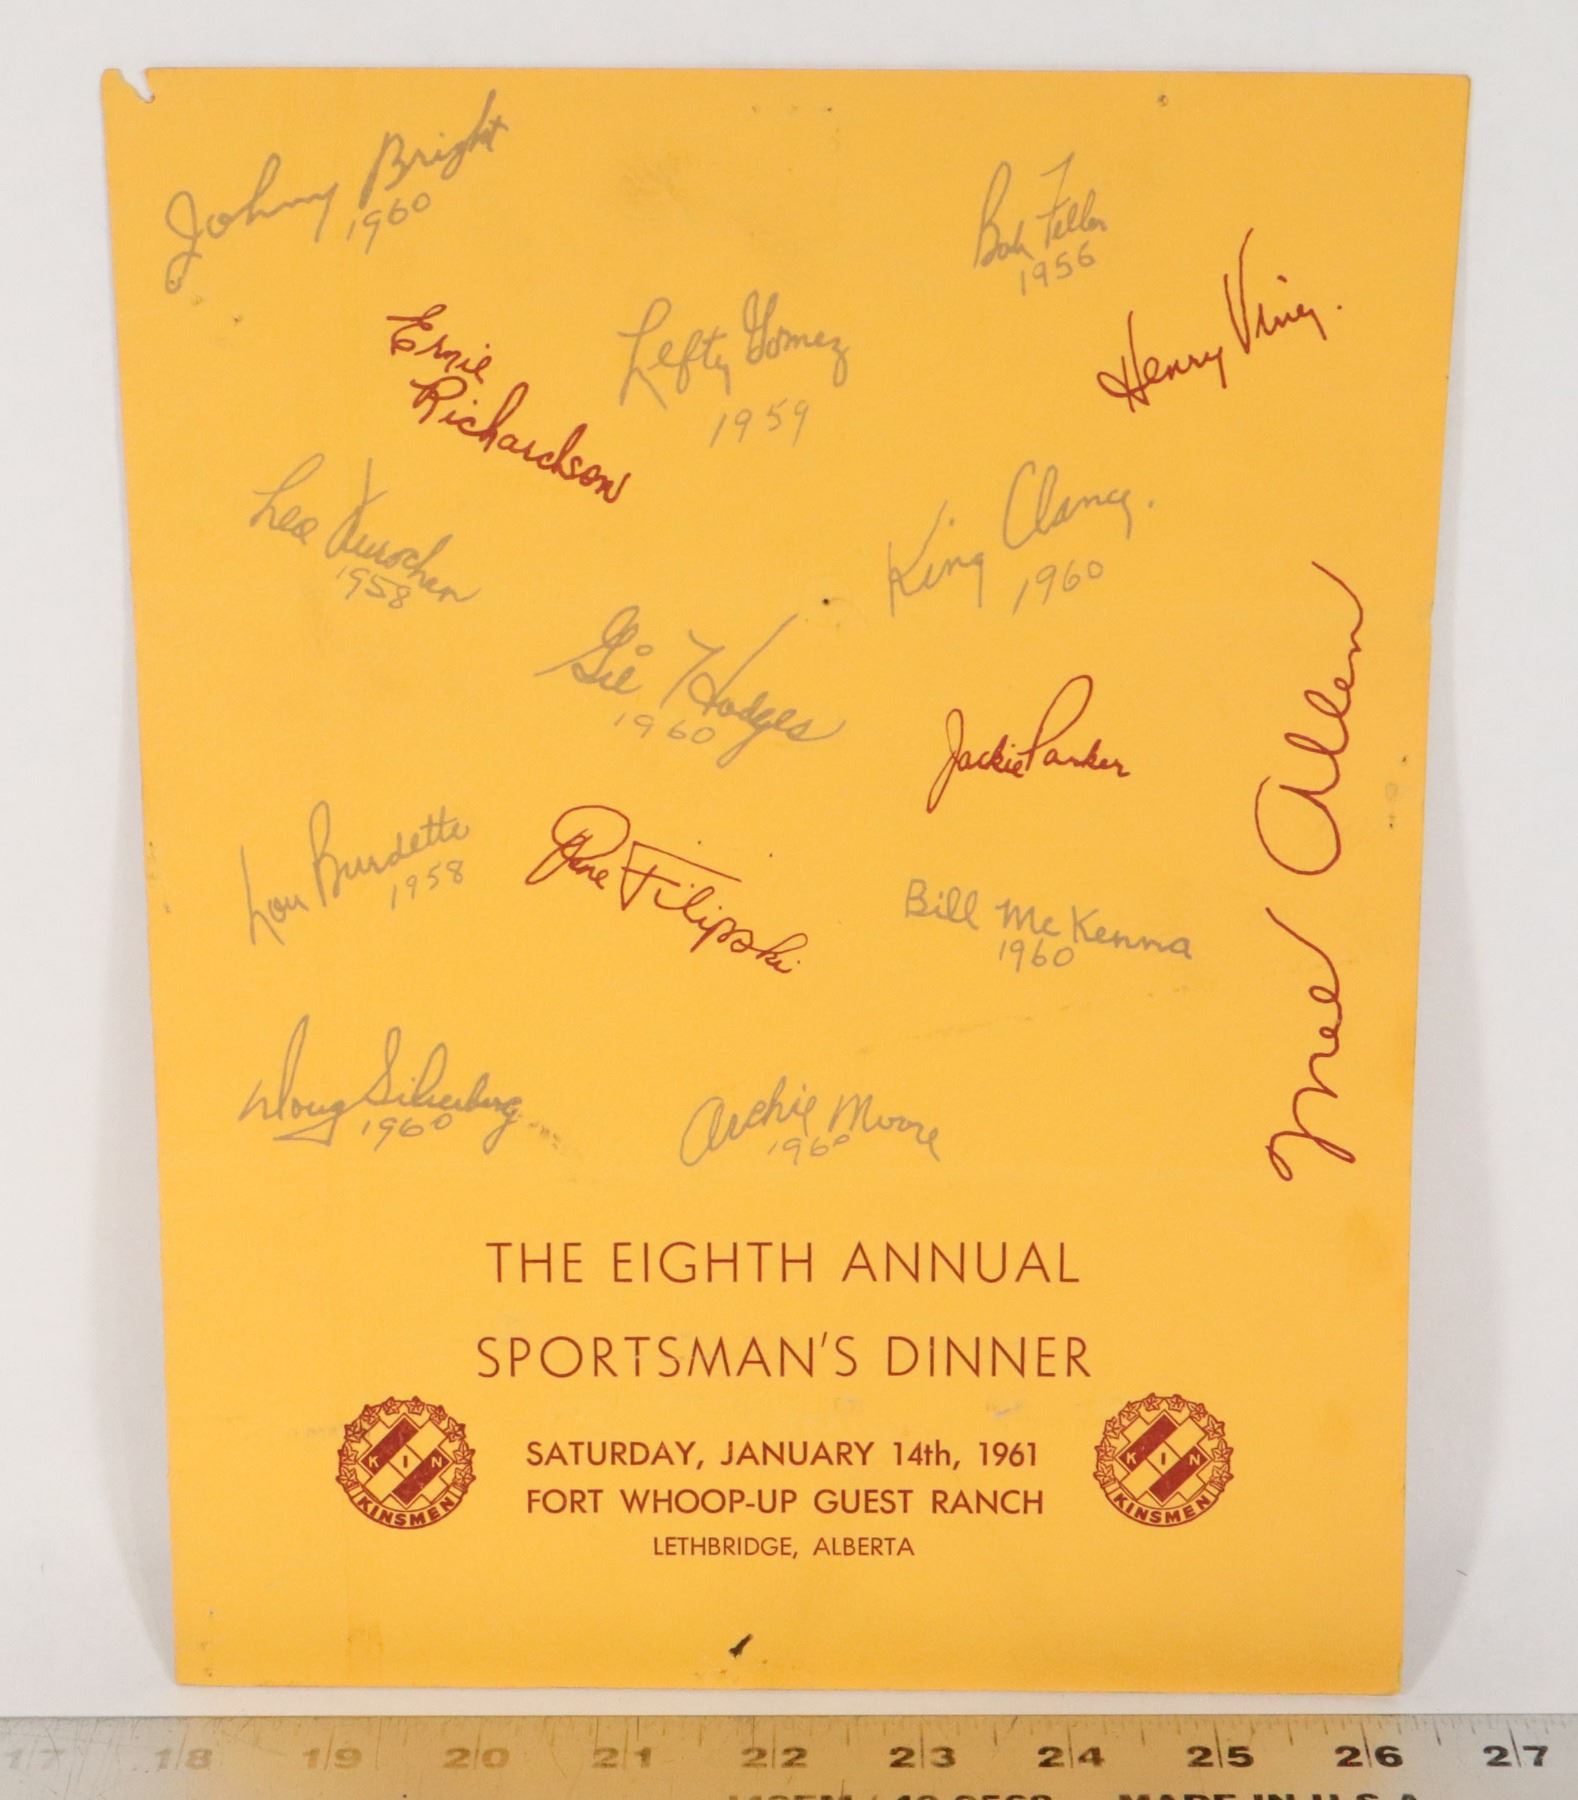 Johnny Bright
1960
Bob Feller
1956
Ernie
Richardson
Lefty Gomez
1959
Henry Viney.
Leo Durocher
1958
King Clancy.
1960
Gil Hodges
1960
Jackie Parker
Mel Allen
Lou Burdette
1958
Gene Filipski
Bill McKenna
1960
Doug Silverberg
1960
Archie Moore
1960
THE EIGHTH ANNUAL
SPORTSMAN'S DINNER
SATURDAY, JANUARY 14th, 1961
FORT WHOOP-UP GUEST RANCH
LETHBRIDGE, ALBERTA
KIN
KINSMEN
KIN
KINSMEN
17 18 19 20 21 22 23 24 25 26 27
MADE IN U.S.A.